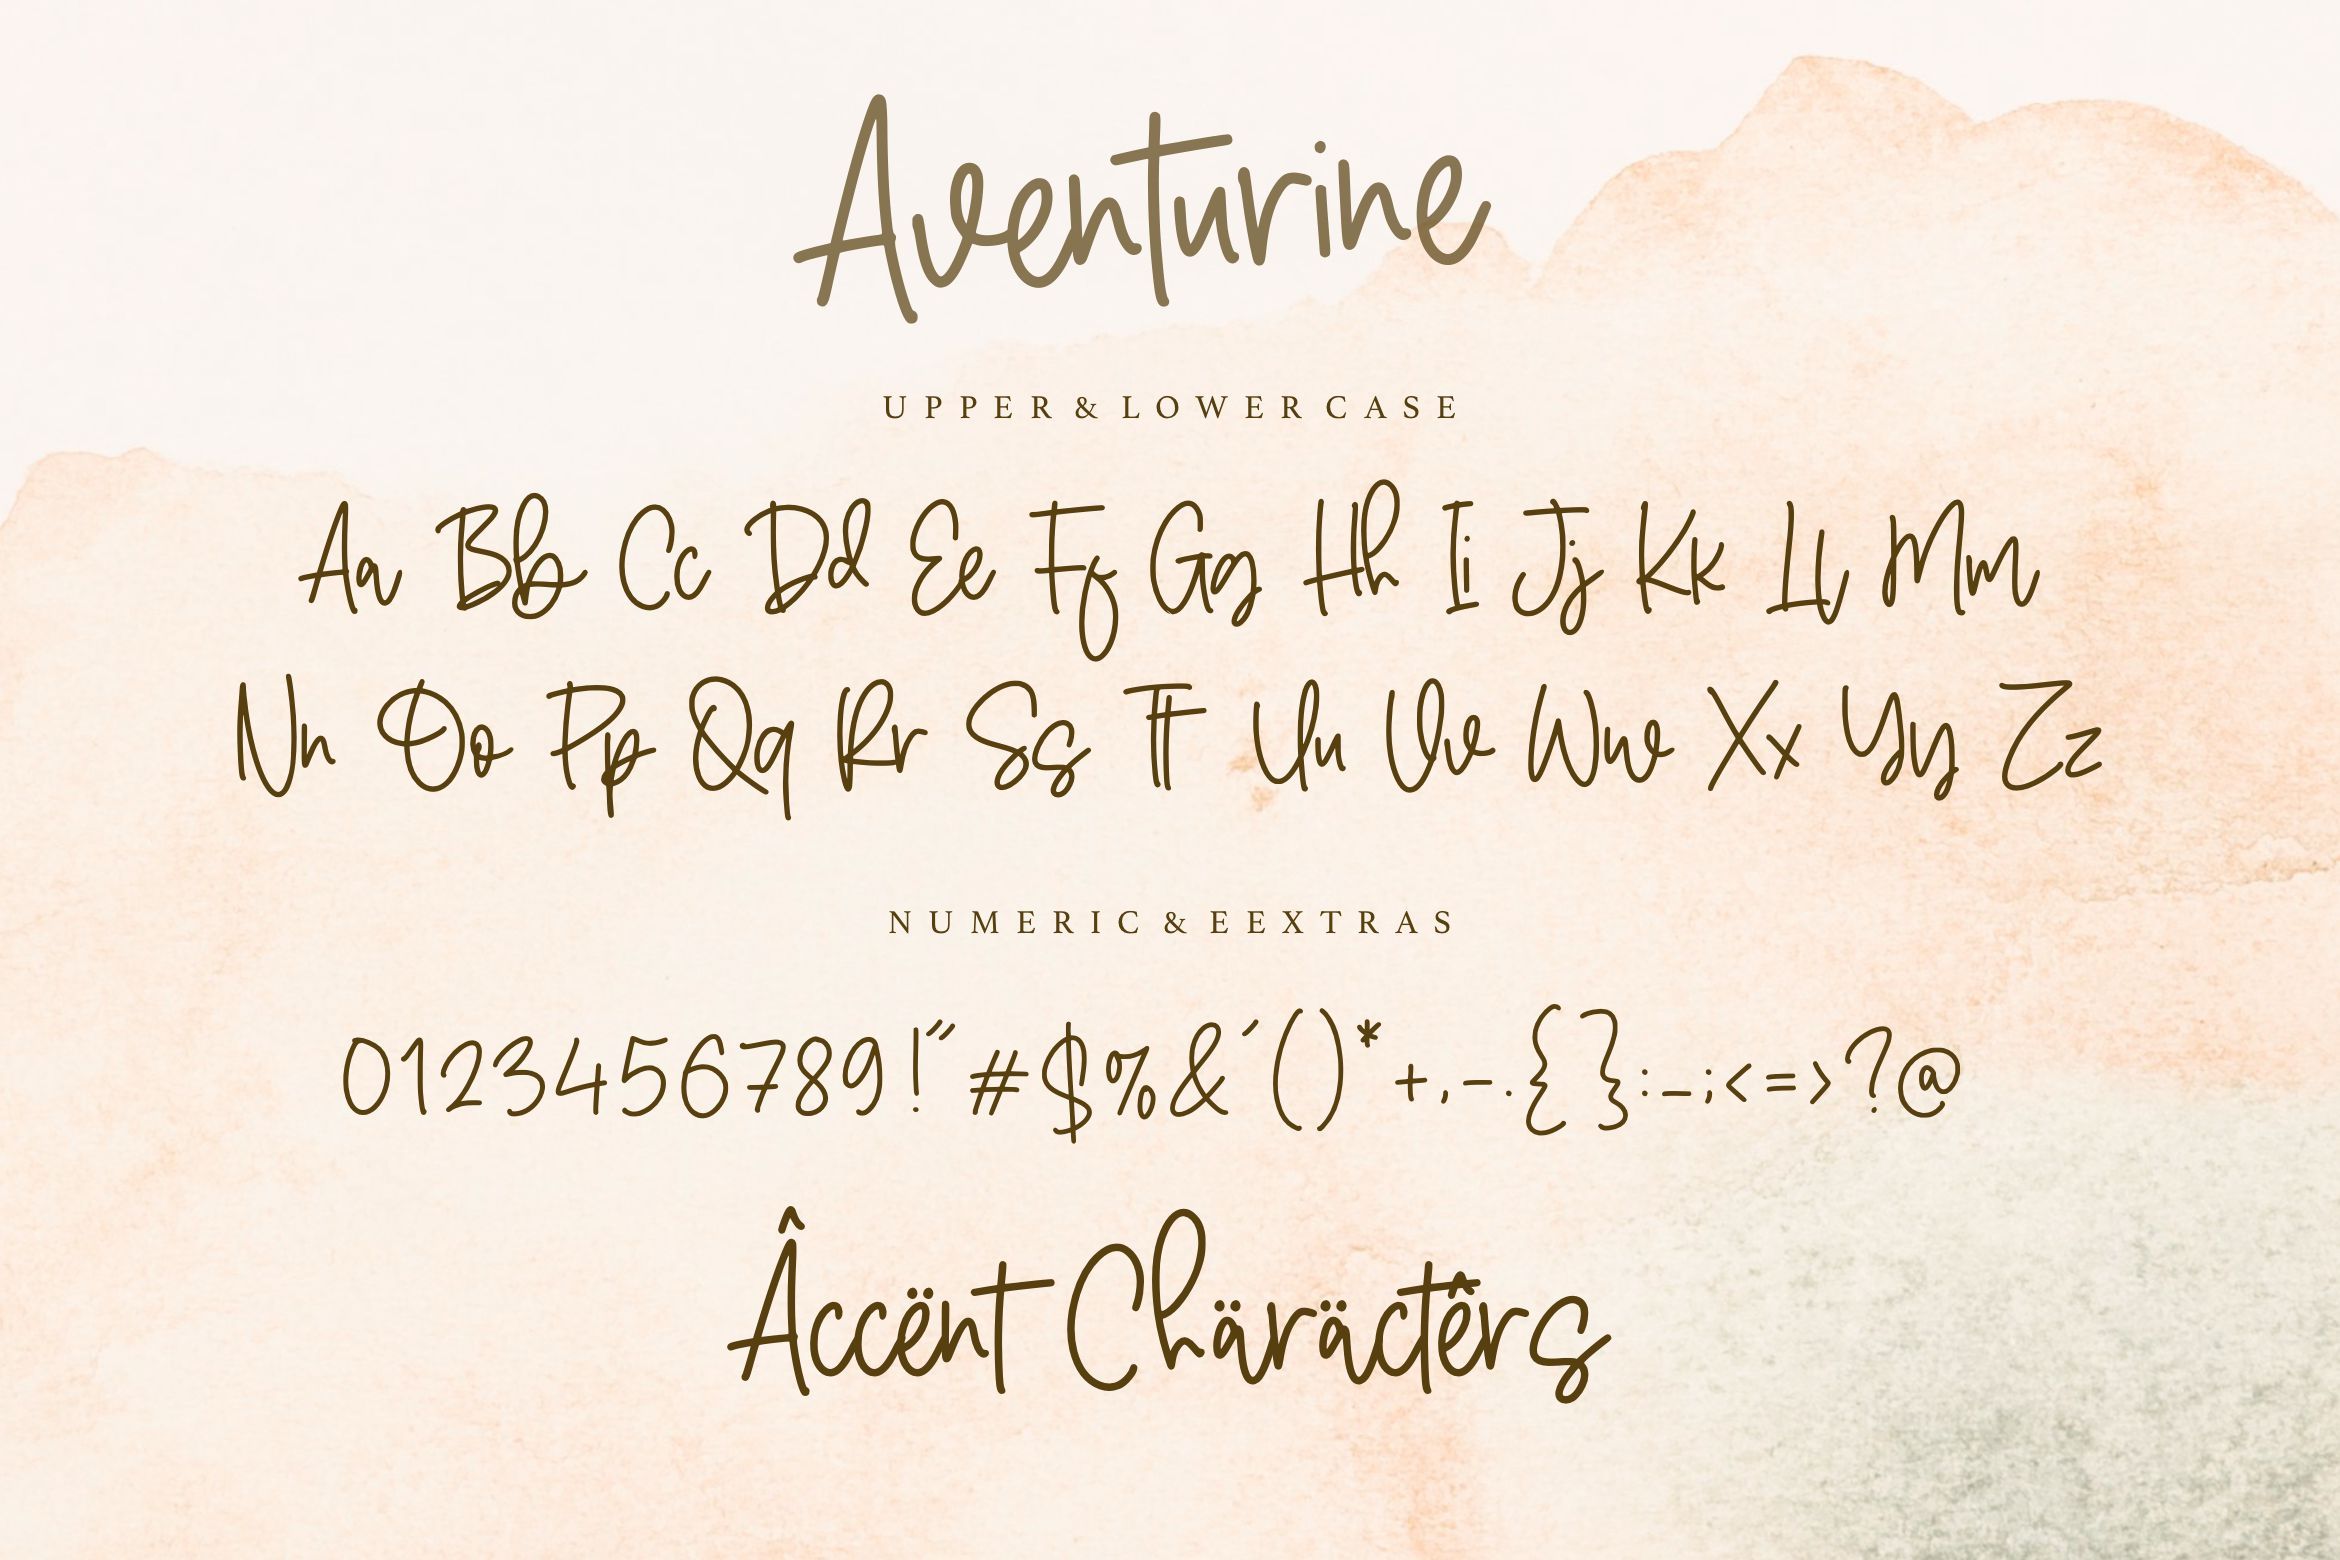 Aventurine
UPPER & LOWERCASE
Aa Bb Cc Dd Ee Ff Gg Hh Ii Jj Kk Ll Mm
Nn Oo Pp Qq Rr Ss Tt Uu Vv Ww Xx Yy Zz
NUMERIC & EEXTRAS
0123456789!"#$%&'()*+,-.{}:_;<=>?@
Âccënt Chäräctêrs